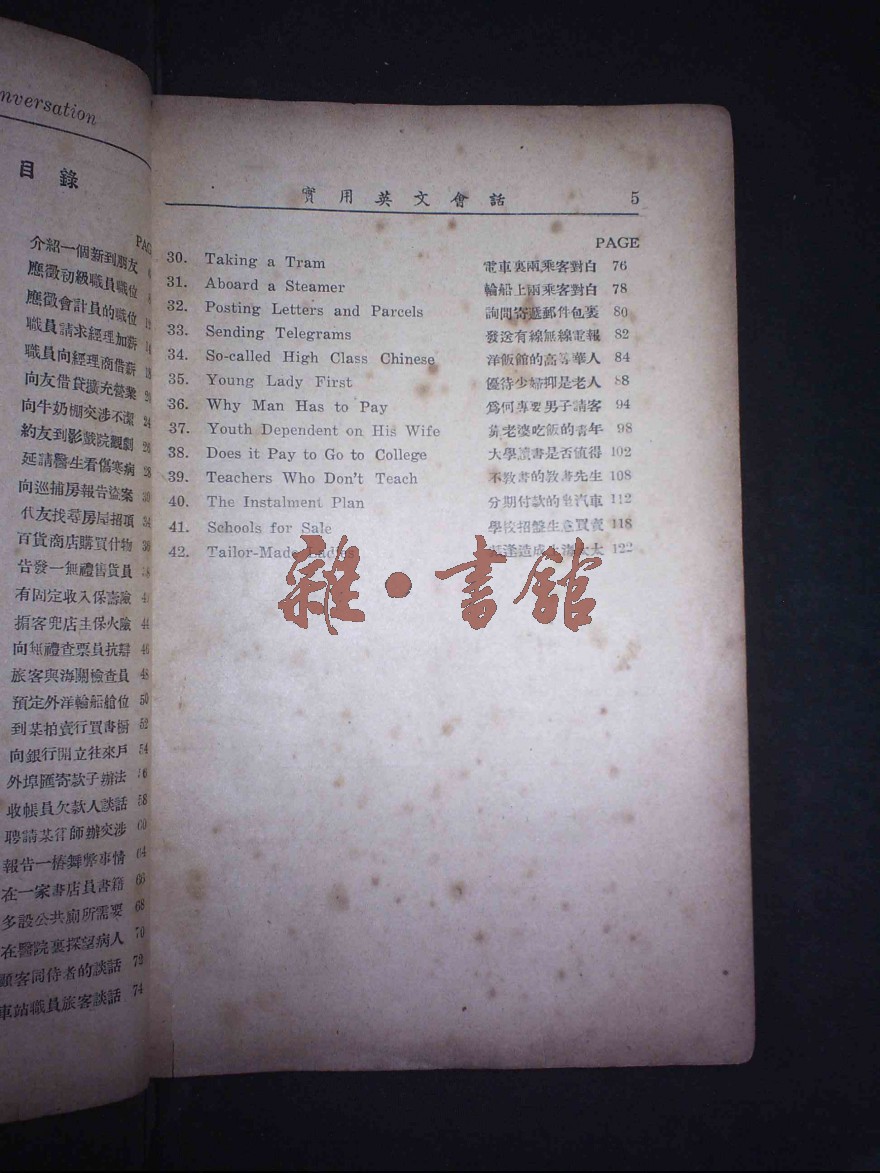 nversation
目錄
PAG
介紹一個新到朋友
應徵初級職員職位
應徵會計員的職位
職員請求經理加薪 14
職員向經理商借薪 18
向友借貸擴充營業 20
向牛奶棚交涉不潔 24
約友到影戲院觀劇 26
延請醫生看傷寒病 28
向巡捕房報告盜案 30
代友找尋房屋招頂 34
百貨商店購買什物 36
告發一無禮售貨員
有固定收入保壽險
掮客兜店主保火險 44
向無禮查票員抗辯 46
旅客與海關檢查員 48
預定外洋輪船艙位 50
到某拍賣行買書櫥 52
向銀行開立往來戶 54
外埠匯寄款子辦法
收帳員欠款人談話 58
聘請某律師辦交涉 60
報告一樁舞弊事情 64
在一家書店買書籍 66
多設公共廁所需要 68
在醫院裏探望病人 70
顧客同侍者的談話 72
車站職員旅客談話 74
實用英文會話 5
PAGE
30. Taking a Tram 電車裏兩乘客對白 76
31. Aboard a Steamer 輪船上兩乘客對白 78
32. Posting Letters and Parcels 詢問寄遞郵件包裹 80
33. Sending Telegrams 發送有線無線電報 82
34. So-called High Class Chinese 洋飯館的高等華人 84
35. Young Lady First 優待少婦抑是老人 88
36. Why Man Has to Pay 為何專要男子請客 94
37. Youth Dependent on His Wife 靠老婆吃飯的青年 98
38. Does it Pay to Go to College 大學讀書是否值得 102
39. Teachers Who Don't Teach 不教書的教書先生 108
40. The Instalment Plan 分期付款的坐汽車 112
41. Schools for Sale 學校招盤生意買賣 118
42. Tailor-Made Ladies 造成上海太太 122
雜·書館